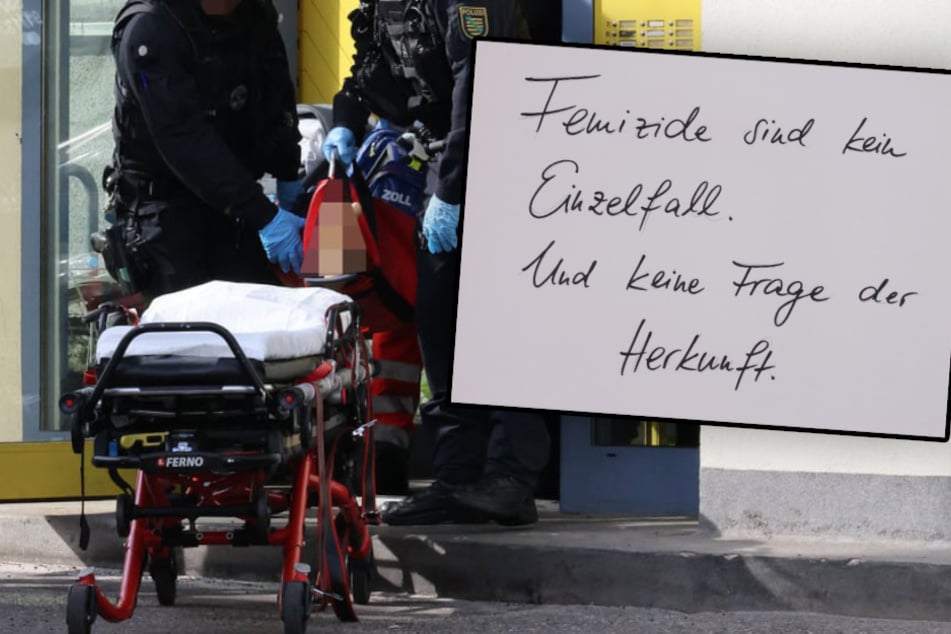 POLIZEI
Femizide sind kein
Einzelfall.
Und keine Frage der
Herkunft.
ZOLL
FERNO